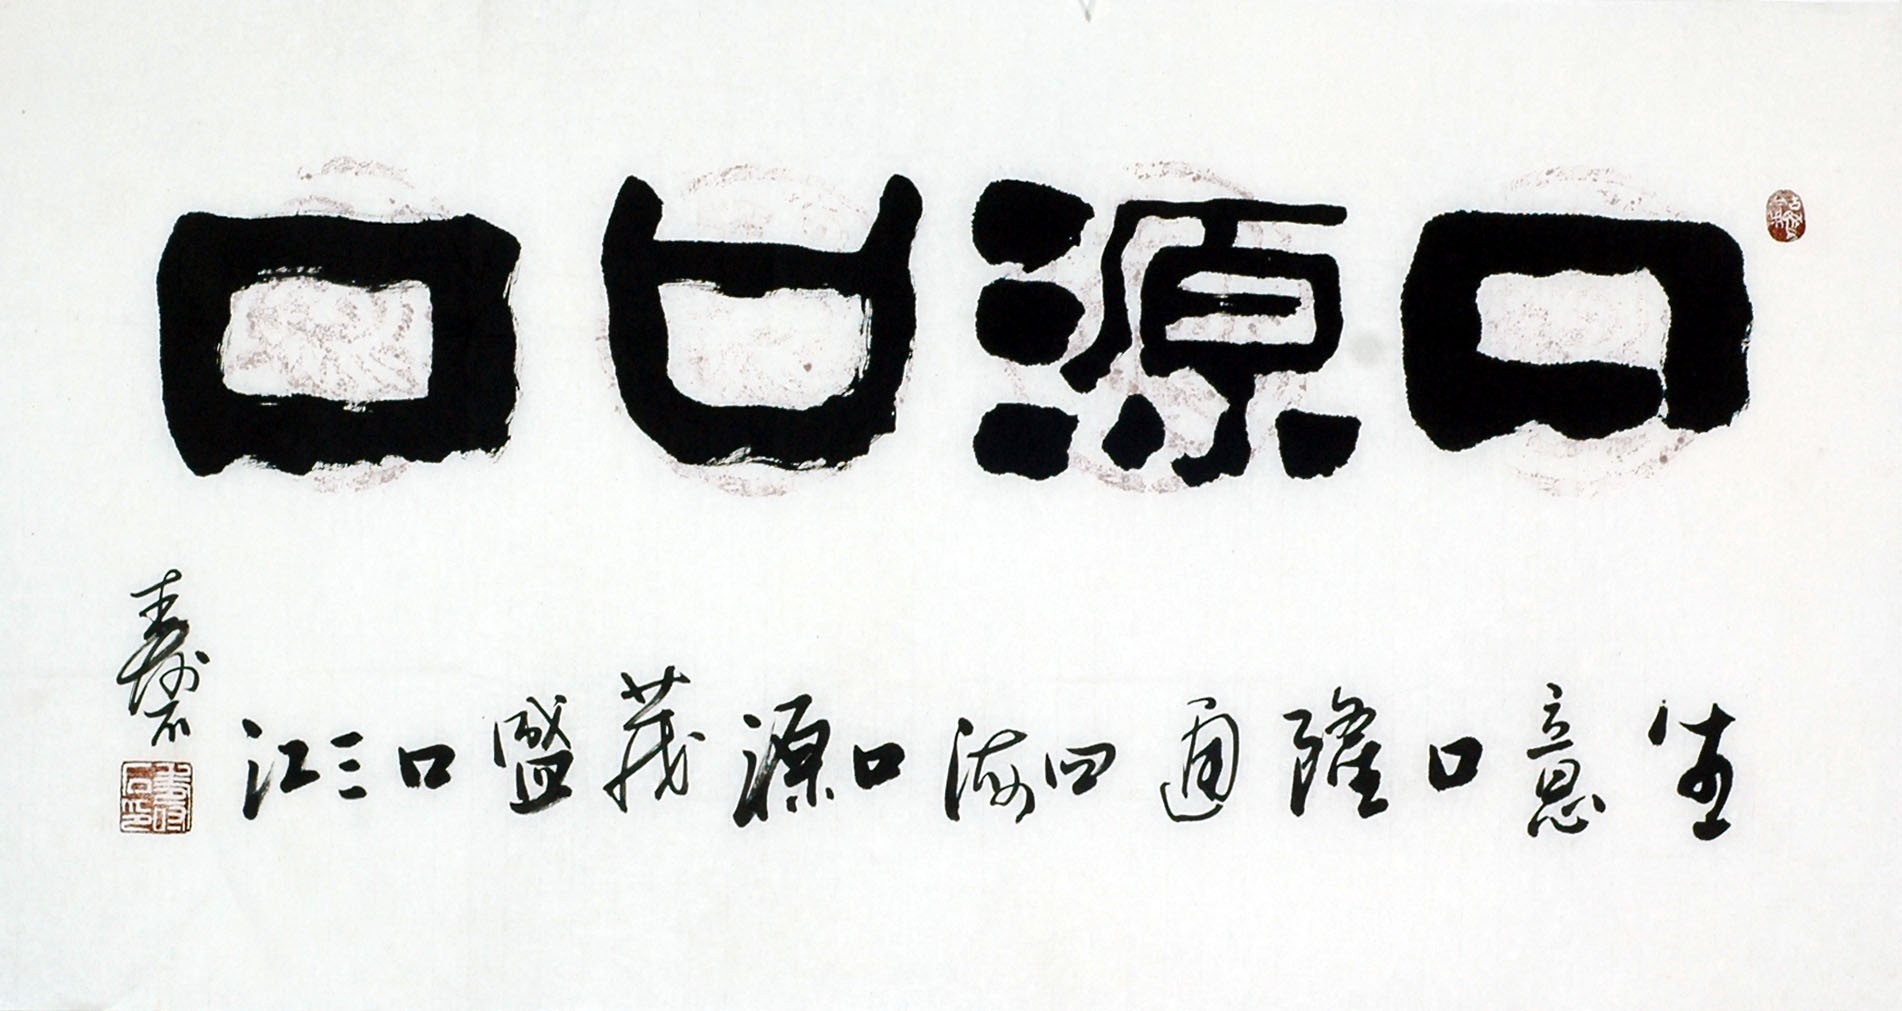 口源口口
生意口隆通四海口源茂盛口三江
寿石